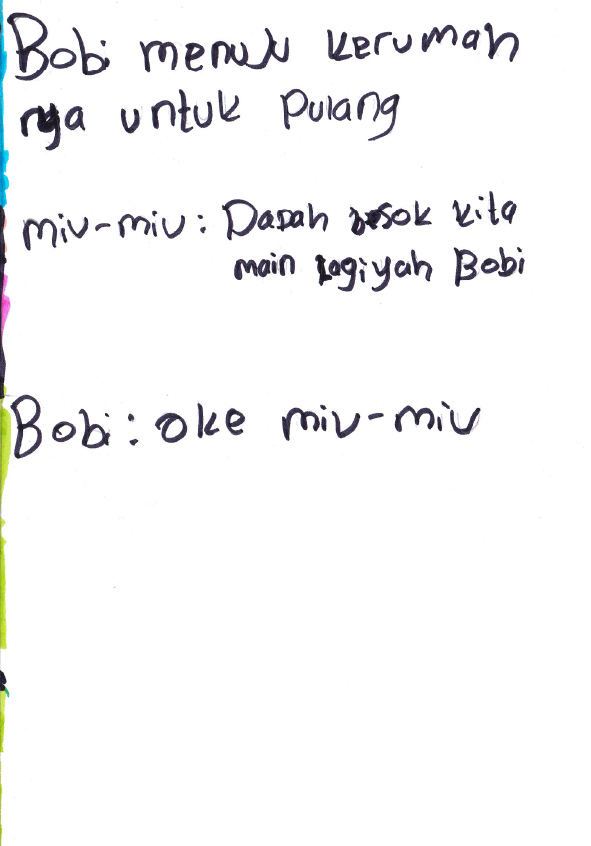 Bobi menuju kerumah
nya untuk Pulang
miu-miu: Dadah besok kita
main lagiyah Bobi
Bobi: oke miu-miu